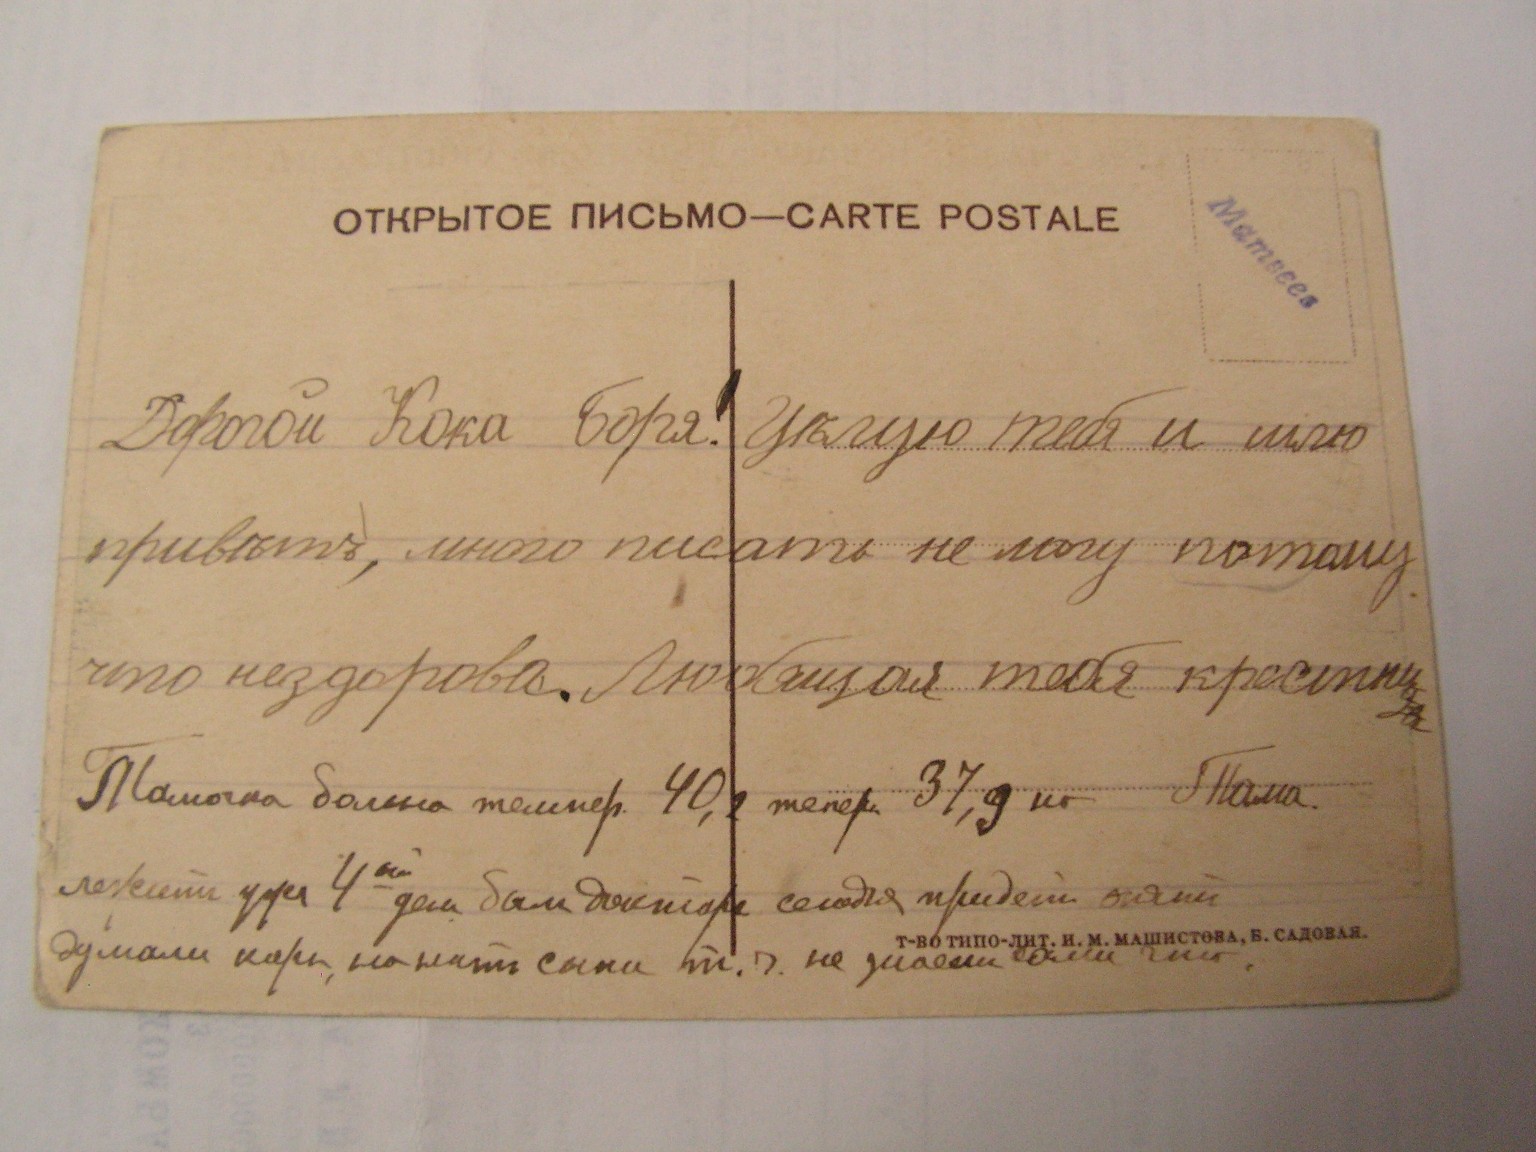 ОТКРЫТОЕ ПИСЬМО—CARTE POSTALE
Матвеев
Дорогой Кока Боря! Цѣлую тебя и шлю
привѣтъ, много писать не могу потому
что нездорова. Любящая тебя крестница
Тама.
Тамочка больна темпер. 40,2 теперь 37,9 но
лежитъ уже 4ый день былъ докторъ сегодня придетъ опять
думали корь, но нѣтъ сыпи т. ч. не знаемъ сами что.
Т-ВО ТИПО-ЛИТ. И. М. МАШИСТОВА, Б. САДОВАЯ.